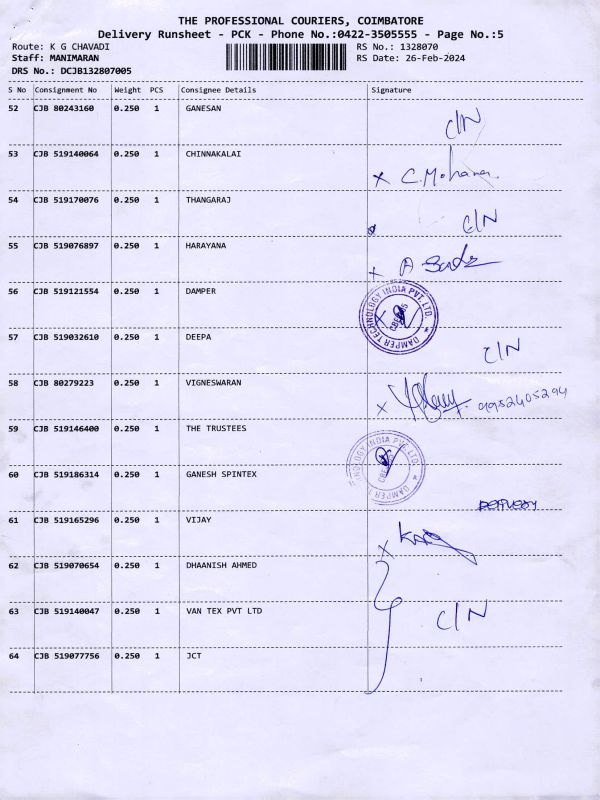 THE PROFESSIONAL COURIERS, COIMBATORE
Delivery Runsheet - PCK - Phone No.:0422-3505555 - Page No.:5
Route: K G CHAVADI RS No.: 1328070
Staff: MANIMARAN RS Date: 26-Feb-2024
DRS No.: DCJB132807005
S No Consignment No Weight PCS Consignee Details Signature
52 CJB 80243160 0.250 1 GANESAN
C/N
53 CJB 519140064 0.250 1 CHINNAKALAI
x C.Mohana
54 CJB 519170076 0.250 1 THANGARAJ
C/N
55 CJB 519076897 0.250 1 HARAYANA
x A
56 CJB 519121554 0.250 1 DAMPER
DAMPER TECHNOLOGY INDIA PVT. LTD.
57 CJB 519032610 0.250 1 DEEPA
C/N
58 CJB 80279223 0.250 1 VIGNESWARAN
x 9952405294
59 CJB 519146400 0.250 1 THE TRUSTEES
DAMPER TECHNOLOGY INDIA PVT. LTD.
60 CJB 519186314 0.250 1 GANESH SPINTEX
61 CJB 519165296 0.250 1 VIJAY
x
62 CJB 519070654 0.250 1 DHAANISH AHMED
63 CJB 519140047 0.250 1 VAN TEX PVT LTD
C/N
64 CJB 519077756 0.250 1 JCT